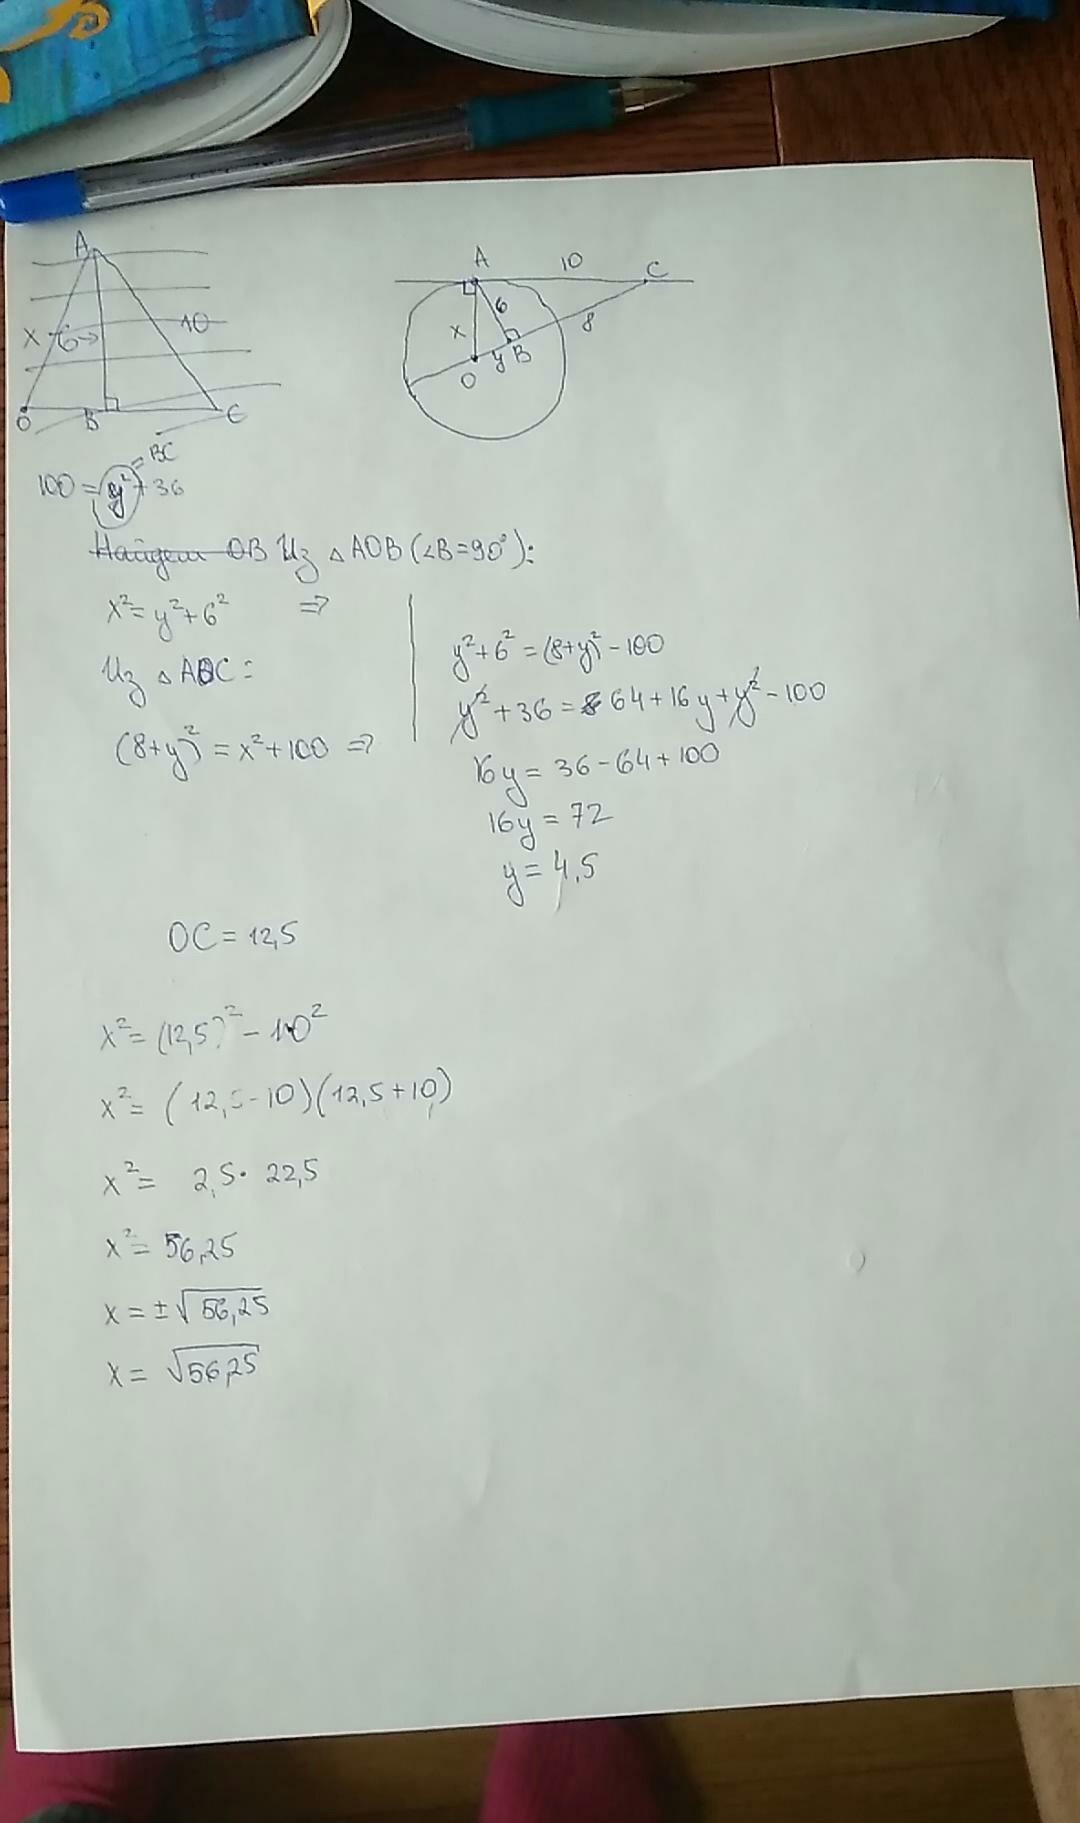 A
x 6 10
O B C
A 10 C
6
x 8
O y B
= BC
100 = y² + 36
Найдем OB Из △ AOB (∠B=90°):
x² = y² + 6² ⇒
Из △ AOC:
(8+y)² = x² + 100 ⇒
y² + 6² = (8+y)² - 100
y² + 36 = 64 + 16y + y² - 100
16y = 36 - 64 + 100
16y = 72
y = 4,5
OC = 12,5
x² = (12,5)² - 10²
x² = (12,5 - 10)(12,5 + 10)
x² = 2,5 · 22,5
x² = 56,25
x = ±√56,25
x = √56,25